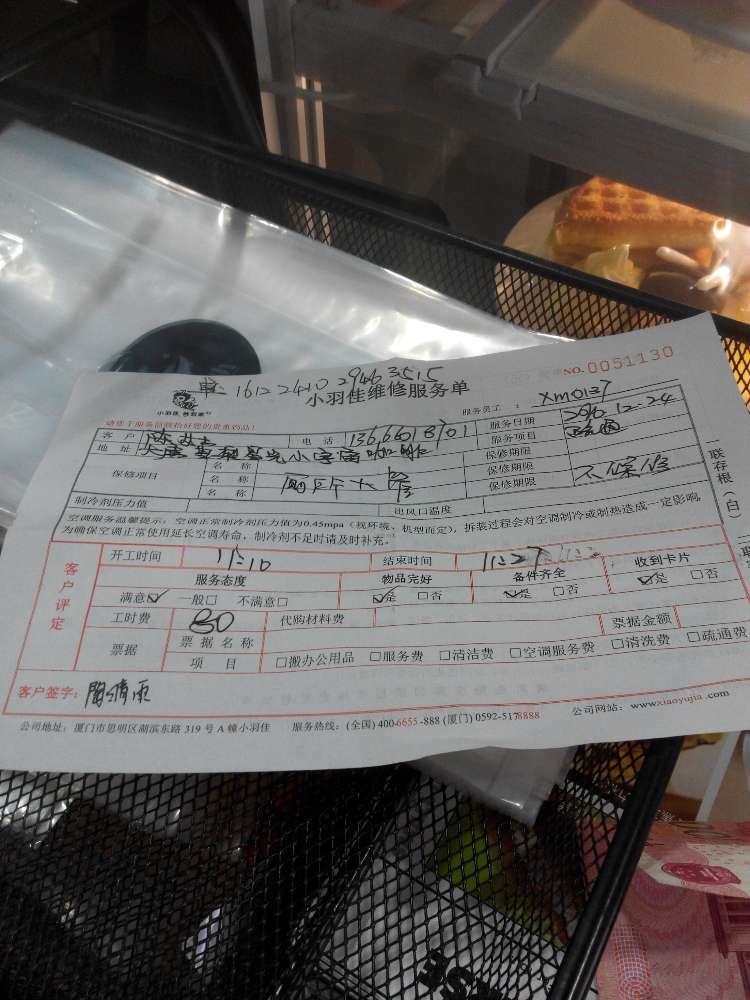 1612241029463515
NO.0051130
小羽佳维修服务单
小羽佳
服务员工： XM0137
请您于服务前收拾好您的贵重物品！
客户 电话 服务日期 2016.12.24
地址 服务项目
保修项目 名称 保修期限
名称 厕所 保修期限 不保修
名称 保修期限
制冷剂压力值 出风口温度
空调服务温馨提示：空调正常制冷剂压力值为0.45mpa（视环境、机型而定），拆装过程会对空调制冷或制热造成一定影响，
为确保空调正常使用延长空调寿命，制冷剂不足时请及时补充。
联存根（白）
客户评定
开工时间 11:10 结束时间 11:27
服务态度 物品完好 备件齐全 收到卡片
满意☑ 一般□ 不满意□ ☑是 □否 ☑是 □否 ☑是 □否
工时费 80 代购材料费
票据 票据名称 票据金额
项目 □搬办公用品 □服务费 □清洁费 □空调服务费 □清洗费 □疏通费
客户签字：
公司地址：厦门市思明区湖滨东路 319 号 A 幢小羽佳 服务热线：(全国) 400-6655-888 (厦门) 0592-5178888 公司网站：www.xiaoyujia.com